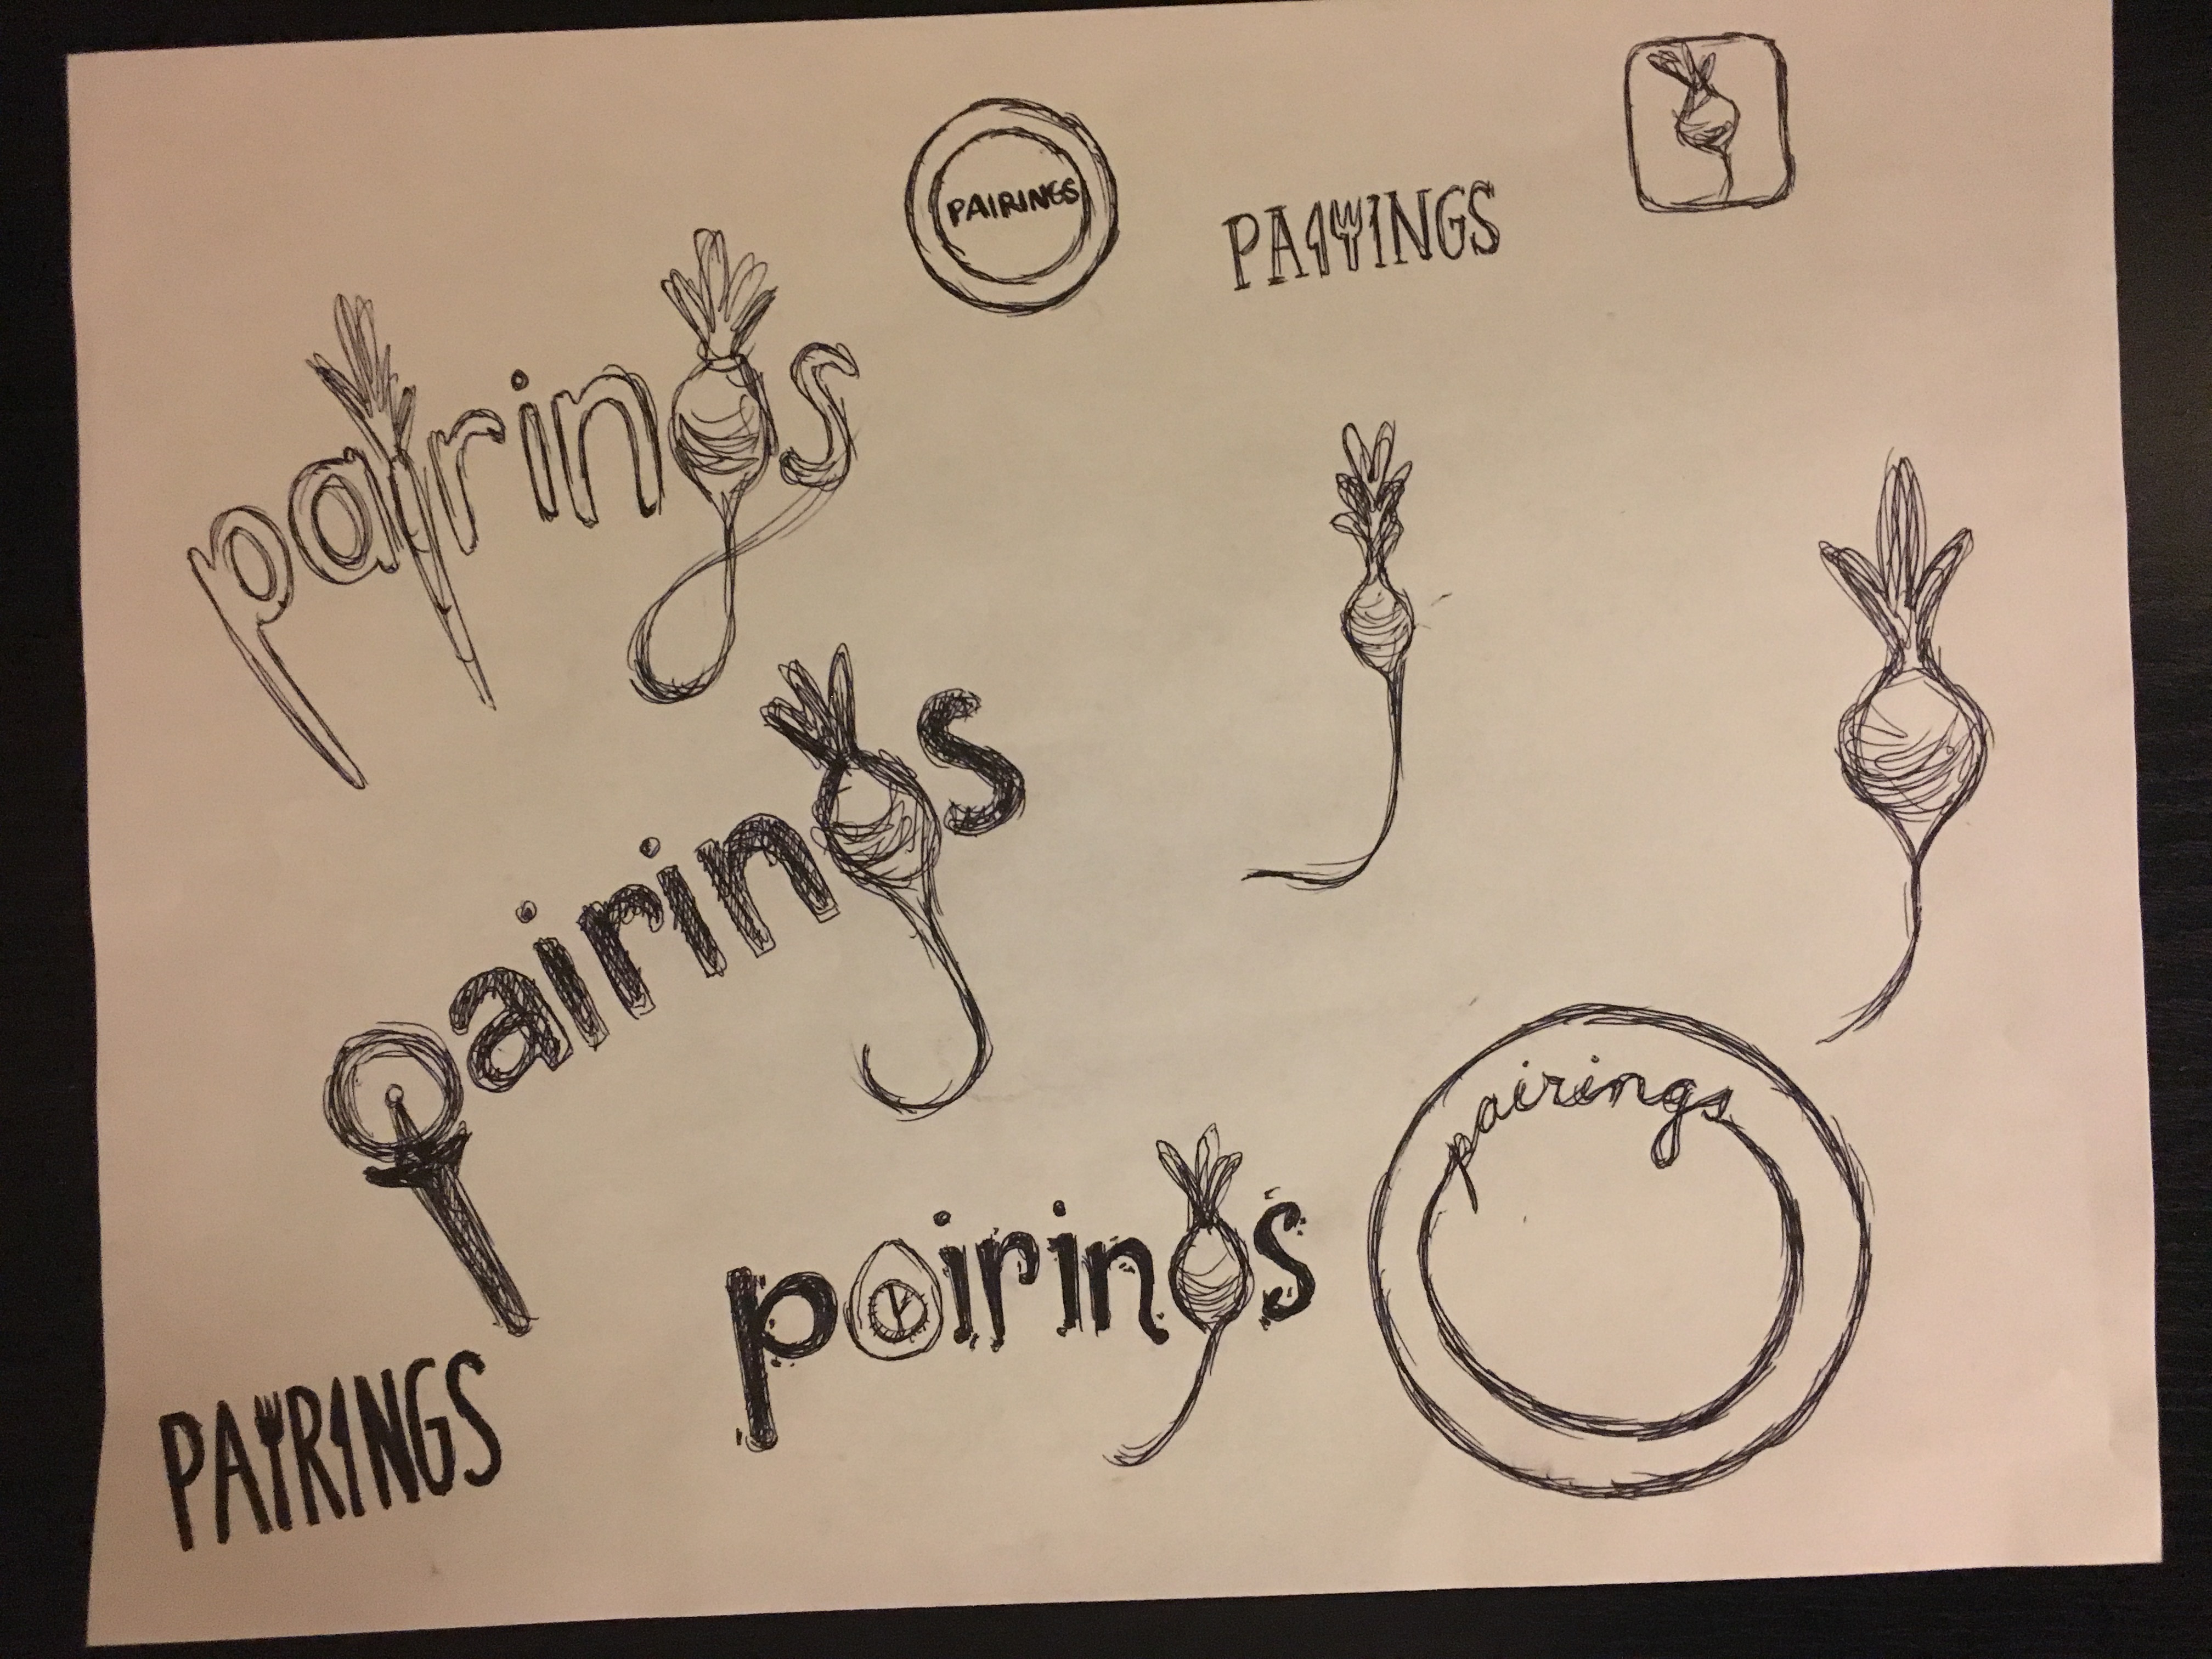 PAIRINGS
PAIRINGS
pairings
pairings
pairings
pairings
PAIRINGS